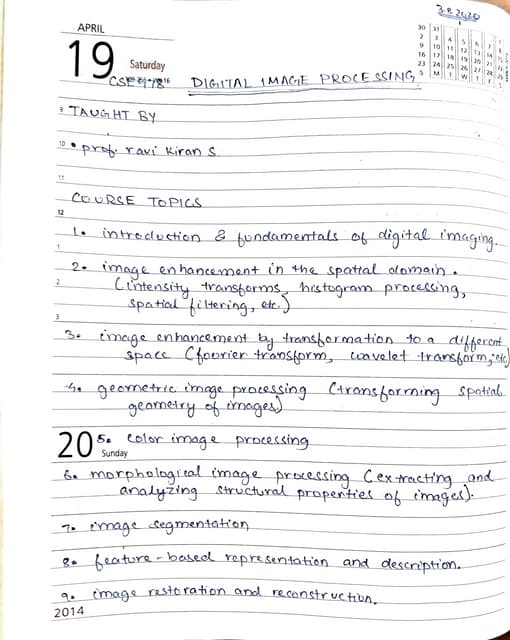 3.8.2020
APRIL
19
Saturday
30 31
2 3 4 5 6 7 1
9 10 11 12 13 14 8
16 17 18 19 20 21 15
23 24 25 26 27 28 22
S M T W
DIGITAL IMAGE PROCESSING
9 TAUGHT BY
10 • prof. ravi kiran S.
11
COURSE TOPICS
12
1. introduction & fundamentals of digital imaging.
1
2. image enhancement in the spatial domain.
2 (intensity transforms, histogram processing,
spatial filtering, etc.)
3
3. image enhancement by transformation to a different
space (fourier transform, wavelet transform, etc)
4. geometric image processing (transforming spatial
geometry of images)
20 5. color image processing
Sunday
6. morphological image processing (extracting and
analyzing structural properties of images).
7. image segmentation
8. feature-based representation and description.
9. image restoration and reconstruction.
2014